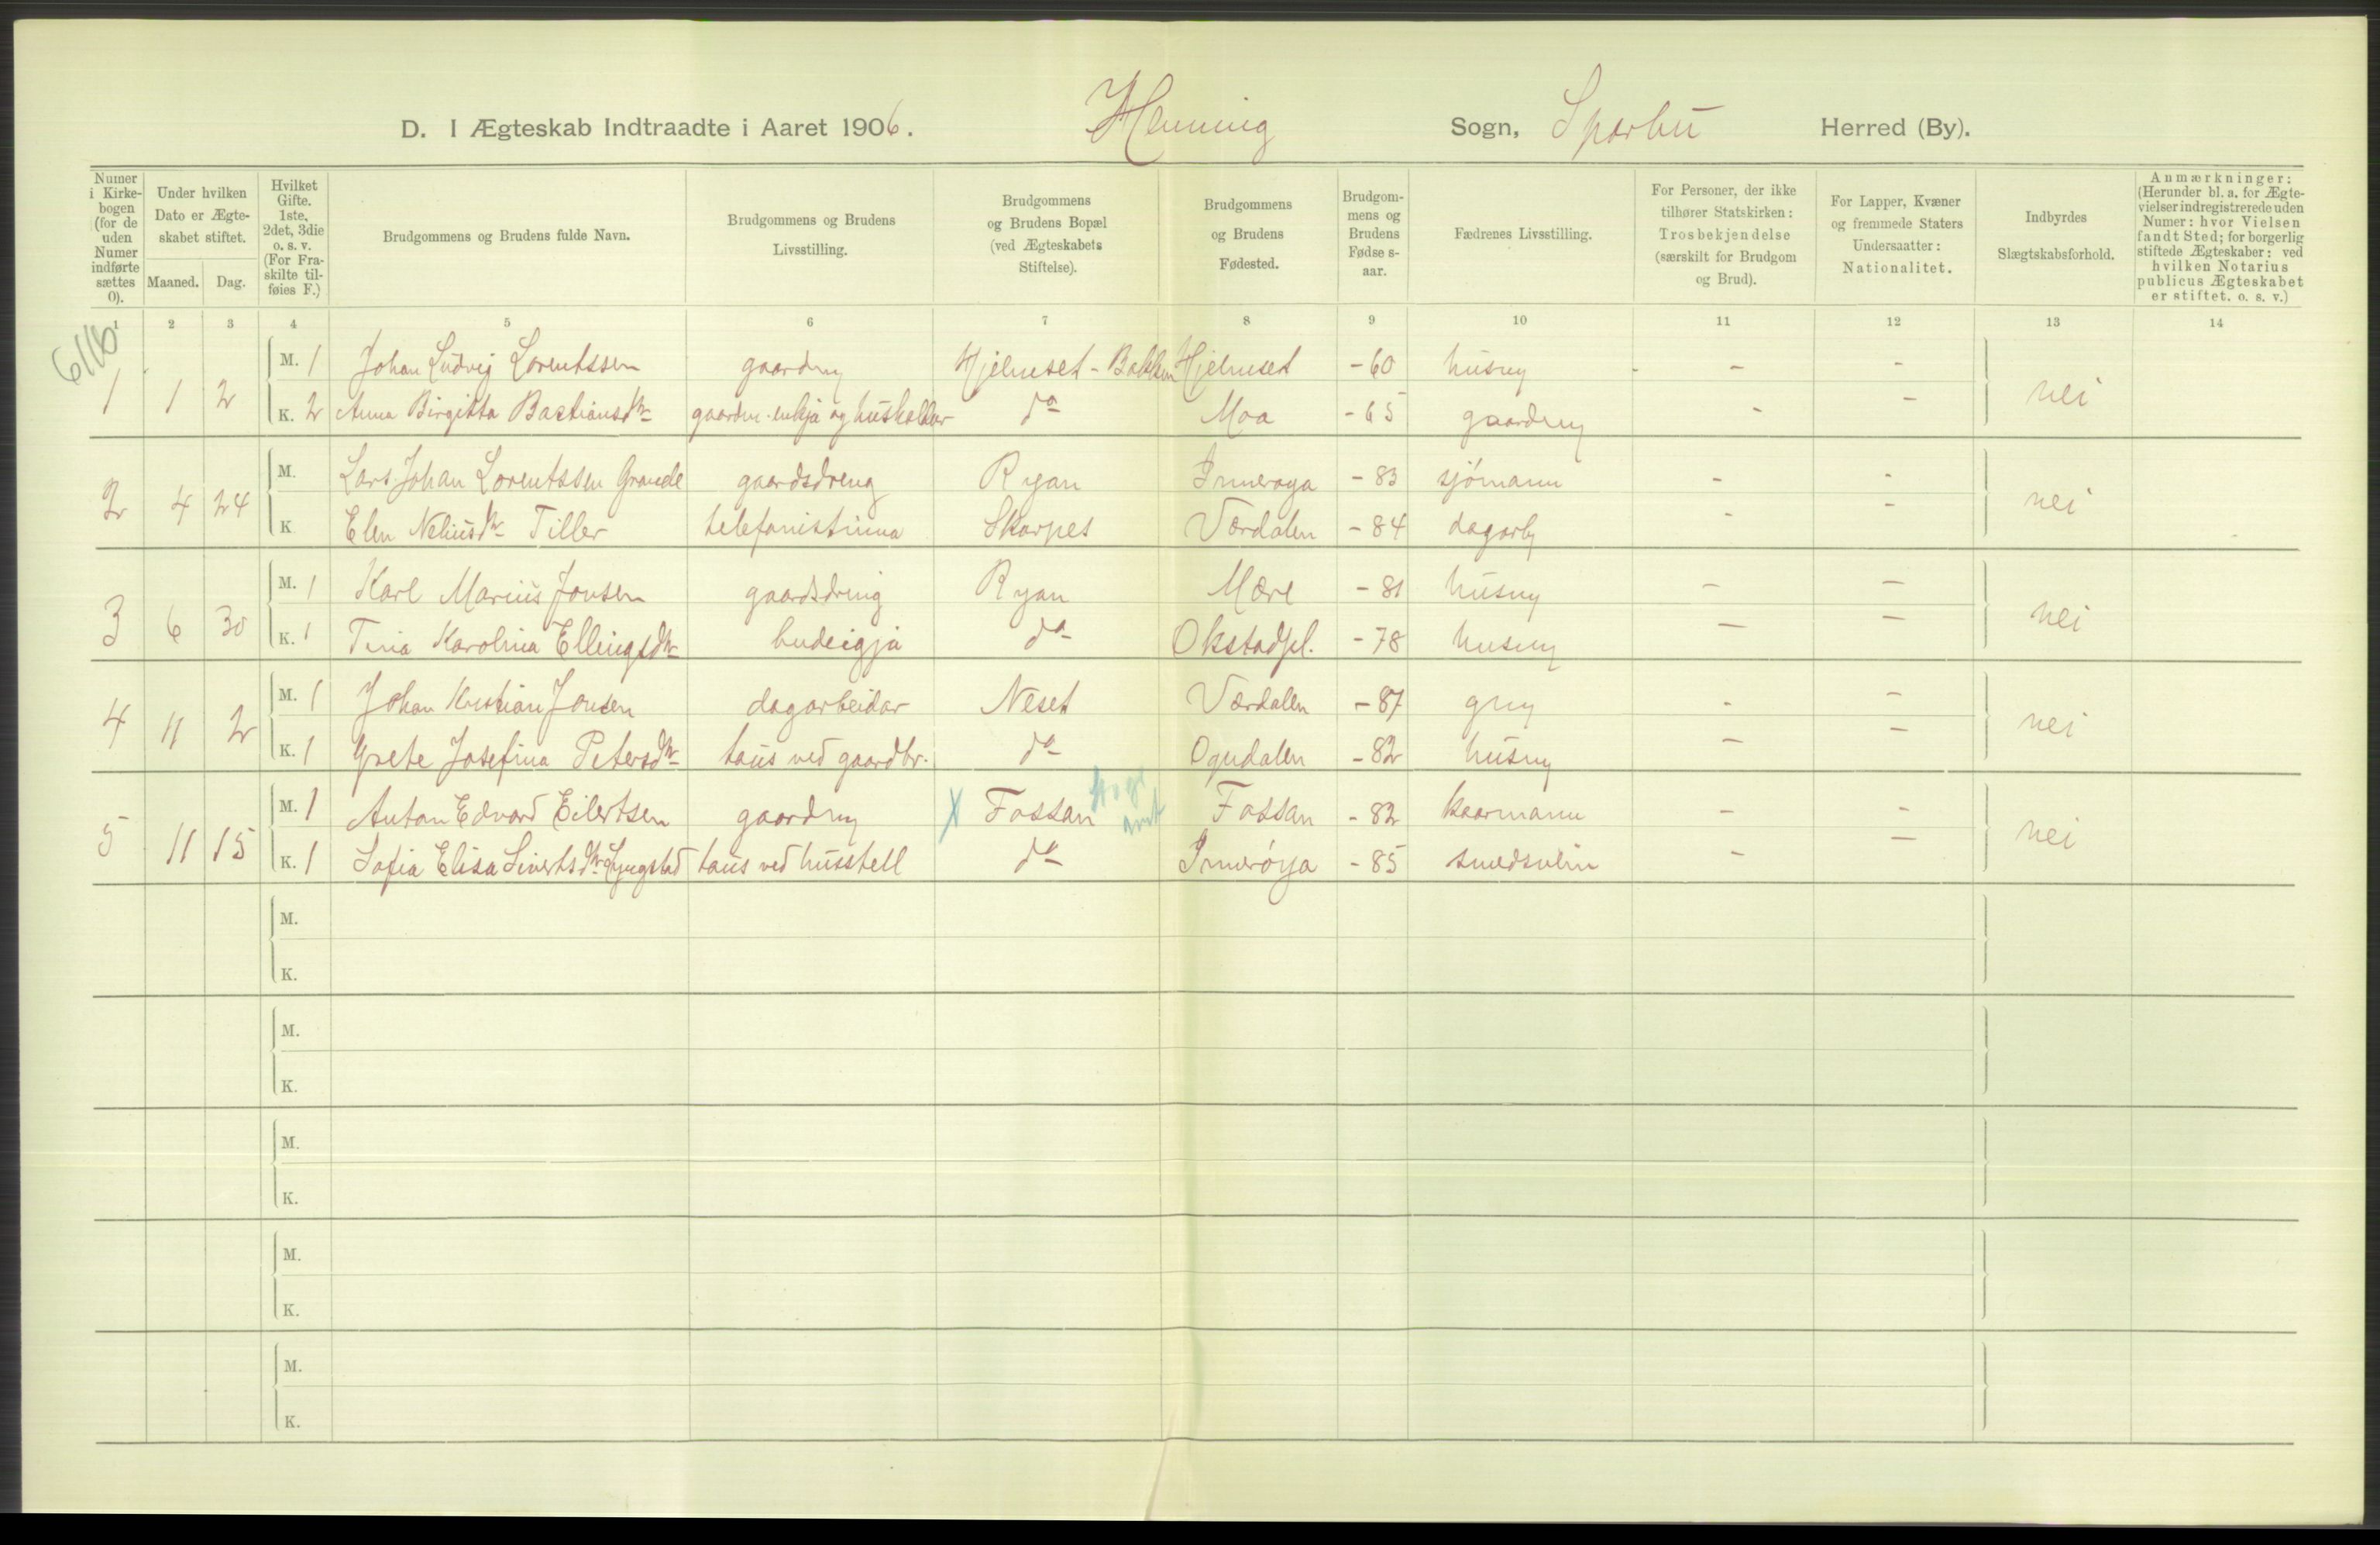 D. I Ægteskab Indtraadte i Aaret 1906. Henning Sogn, Sparbu Herred (By).
Numer i Kirkebogen (for de uden Numer indførte sættes 0).
Under hvilken Dato er Ægteskabet stiftet.
Maaned. Dag.
Hvilket Gifte. 1ste, 2det, 3die o. s. v. (For Fraskilte tilføies F.)
Brudgommens og Brudens fulde Navn.
Brudgommens og Brudens Livsstilling.
Brudgommens og Brudens Bopæl (ved Ægteskabets Stiftelse).
Brudgommens og Brudens Fødested.
Brudgommens og Brudens Fødselsaar.
Fædrenes Livsstilling.
For Personer, der ikke tilhører Statskirken: Trosbekjendelse (særskilt for Brudgom og Brud).
For Lapper, Kvæner og fremmede Staters Undersaatter: Nationalitet.
Indbyrdes Slægtskabsforhold.
Anmærkninger: (Herunder bl. a. for Ægtevielser indregistrerede uden Numer: hvor Vielsen fandt Sted; for borgerlig stiftede Ægteskaber: ved hvilken Notarius publicus Ægteskabet er stiftet, o. s. v.)
1 2 3 4 5 6 7 8 9 10 11 12 13 14
6116
M. 1 Johan Ludvig Lorentssen gaardmy Hjelmset-Bakken Hjelmset -60 husmy - -
1 1 2 nei
K. 2 Anna Birgitta Bastiansdtr gaardm. enkja og husholdar do Moa -65 gaardmy - -
M. Lars Johan Lorentssen Grande gaardsdreng Ryan Inneroya -83 sjómann - -
2 4 24 nei
K. Elen Neliusdtr Tiller telefonistinna Skarpes Værdalen -84 dagarb - -
M. 1 Karl Marius Jonsen gaardsdreng Ryan Mære -81 husmy - -
3 6 30 nei
K. 1 Tina Karolina Ellingsdtr budeigja do Okstadpl. -78 husmy - -
M. 1 Johan Kristian Jonsen dagarbeidar Neset Værdalen -87 gmy - -
4 11 2 nei
K. 1 Grete Josefina Petersdtr taus ved gaardbr. do Ogndalen -82 husmy - -
M. 1 Anton Edvard Eilertsen gaardmy X Fossan Fossan -82 kaarmann - -
5 11 15 nei
K. 1 Sofia Elisa Sivertsdtr Lyngstad taus ved husstell do Innerøya -85 smedsvein - -
M.
K.
M.
K.
M.
K.
M.
K.
M.
K.